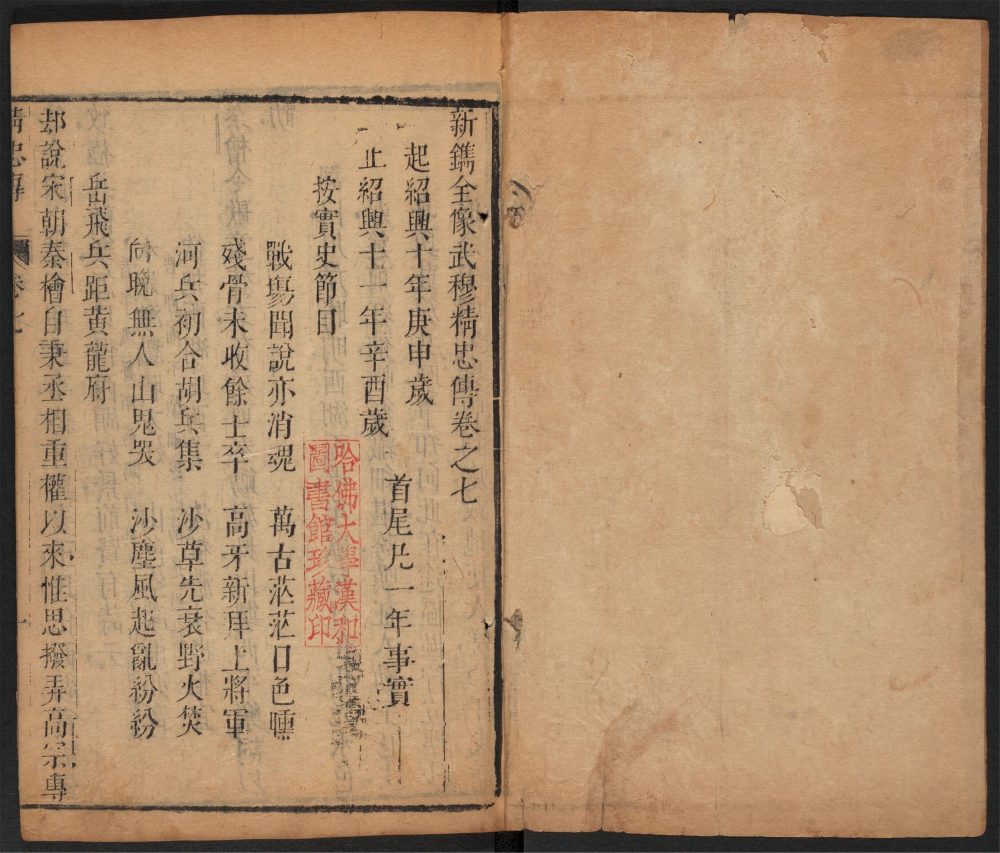 新鐫全像武穆精忠傳卷之七
起紹興十年庚申歲
止紹興十一年辛酉歲
首尾凢一年事實
按實史節目
戰塲聞說亦消魂 萬古茫茫日色曛
殘骨未收餘士卒 高牙新拜上將軍
河兵初合胡兵集 沙草先衰野火焚
向晚無人山鬼哭 沙塵風起亂紛紛
岳飛兵距黃龍府
却說宋朝秦檜自秉丞相重權以來惟思撥弄高宗專
精忠傳 卷七 一
哈佛大學漢和
圖書館珍藏印